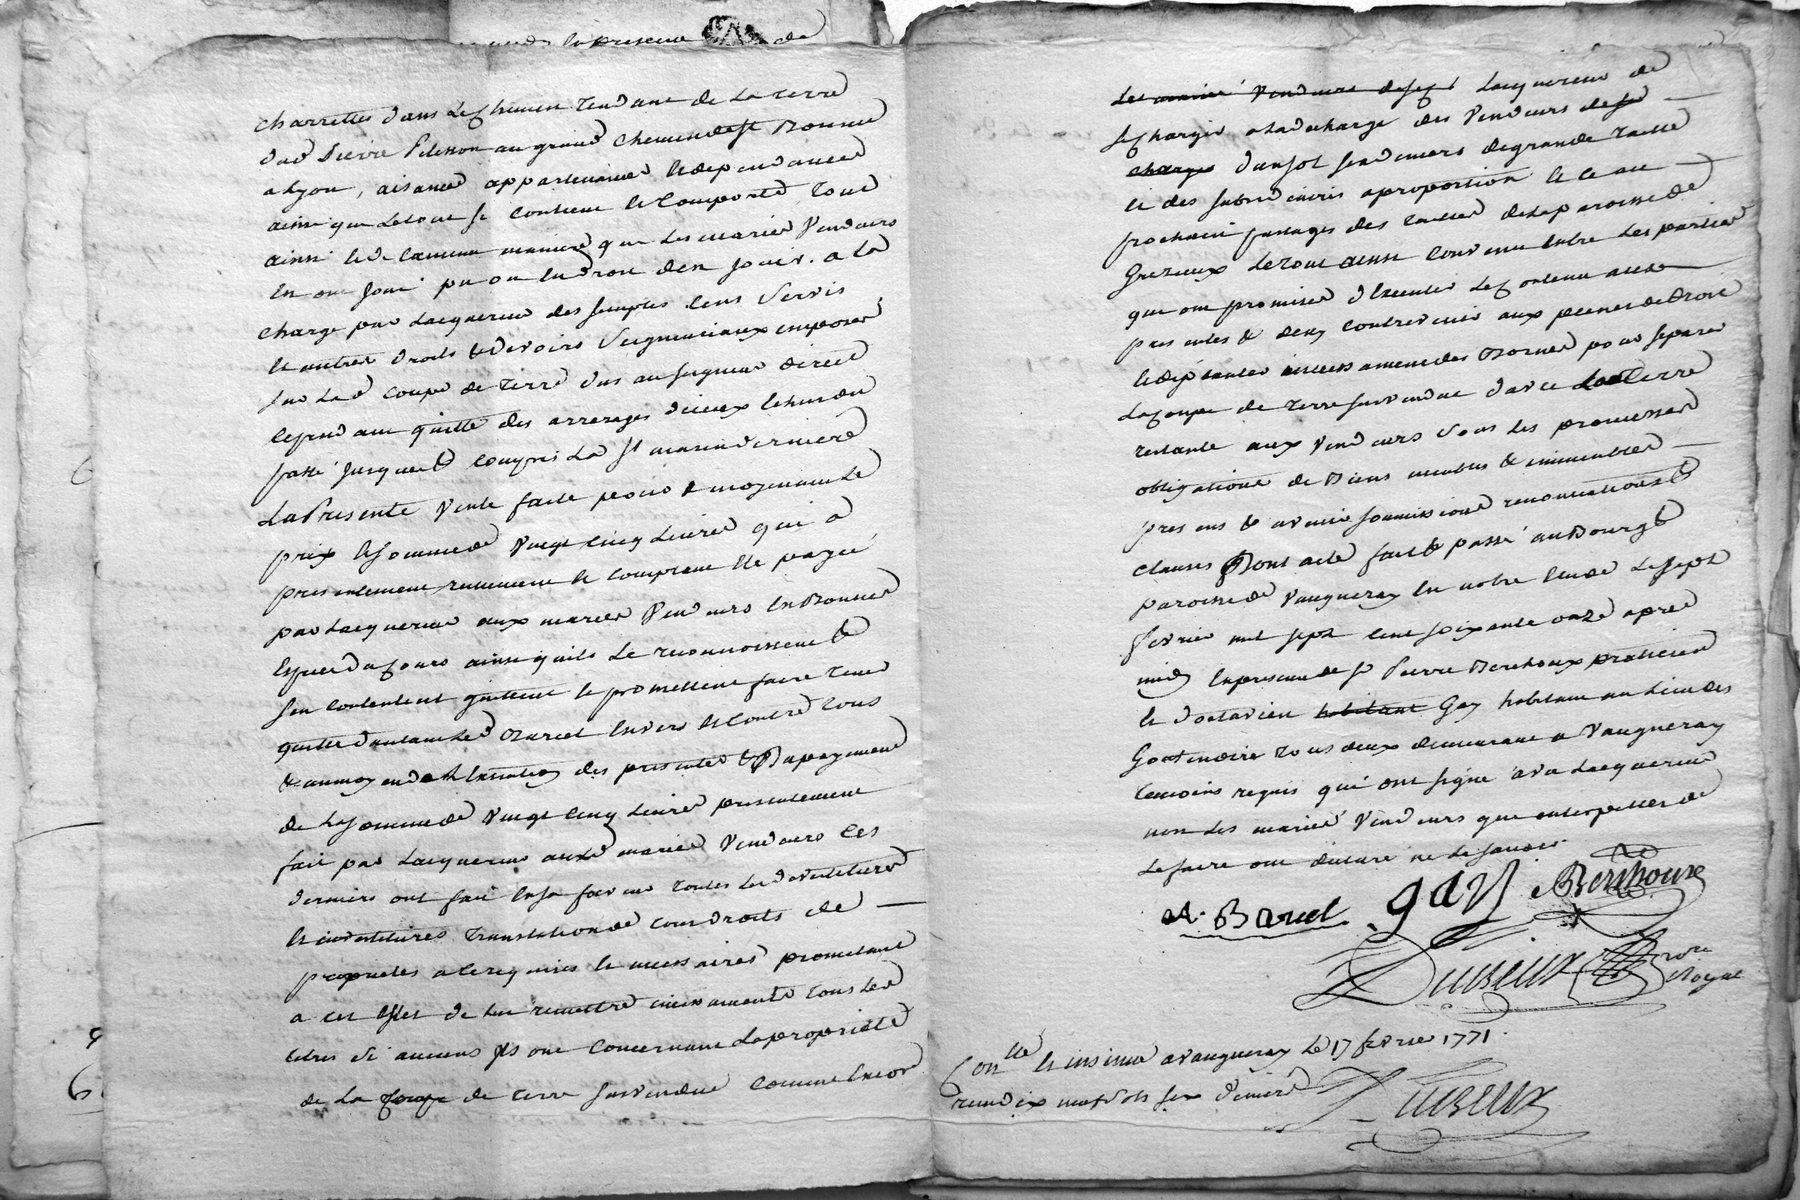 charrettes dans le chemin tendant de la terre
dud Pierre Pelisson au grand chemin de Bonne
a Lyon, aisances appartenances et dependances
ainsi que le tout se contient et comporte tout
ainsi et de la meme maniere que les maries vendeurs
en ont joui pu ou eu droit d'en jouir. a la
charge par lacquereur des simples cens servis
et autres droits et devoirs seigneuriaux imposés
sur lad coupe de terre dus au seigneur direct
cependant quitte des arrerages d'iceux et du
passé jusques et compris la St martin derniere
La Presente vente faite pour et moyennant le
prix et somme de vingt cinq livres qui a
presentement reellement et comptant eté payé
par lacquereur aux maries vendeurs en bonnes
especes du cours ainsi qu'ils le reconnoissent et
s'en contentent quittent et promettent faire tenir
quitte d'autant led Barcel envers et contre tous
& au moyen de l'execution des presentes et du payement
de la somme de vingt cinq livres presentement
fait par lacquereur auxd maries vendeurs ces
derniers ont fait en sa faveur toutes les devetitures
et investitures translation de tous droits de
proprietes a ce requises et necessaires promettant
a cet effet de lui remettre incessamment tous les
titres si aucuns ils ont concernant la proprieté
de la coupe de terre survendue comme encor
les mariés vendeurs lacquereur de
se charger a la decharge des vendeurs
charges d'un sol six deniers de grande taille
et des subsidiaires a proportion et ce au
prochain passages des tailles de la paroisse de
Grezieux le tout ainsi convenu entre les parties
qui ont promises d'executer le contenu aux
presentes & d'en contrevenir aux peines de droit
et de planter incessamment des bornes pour separer
la coupe de terre survendue d'avec la terre
restante aux vendeurs sous les promesses
obligations de biens meubles & immeubles
presents & avenir soumissions renonciations &
clauses Dont acte fait & passé au Bourg &
paroisse de Vaugneray en notre etude le sept
fevrier mil sept cent soixante onze apres
midy en presence de Sr Pierre Berthoux praticien
et d'octavien habitant Gay habitant au lieu des
tous deux demeurant a Vaugneray
temoins requis qui ont signé avec lacquereur
non les mariés vendeurs que enterpellés de
le faire ont declaré ne le savoir.
A. Barcel gay Berthoux
Duseux Nore
Royal
Conlle et insinué a vaugneray le 17 fevrier 1771.
recu dix neuf sols six deniers
Duseux